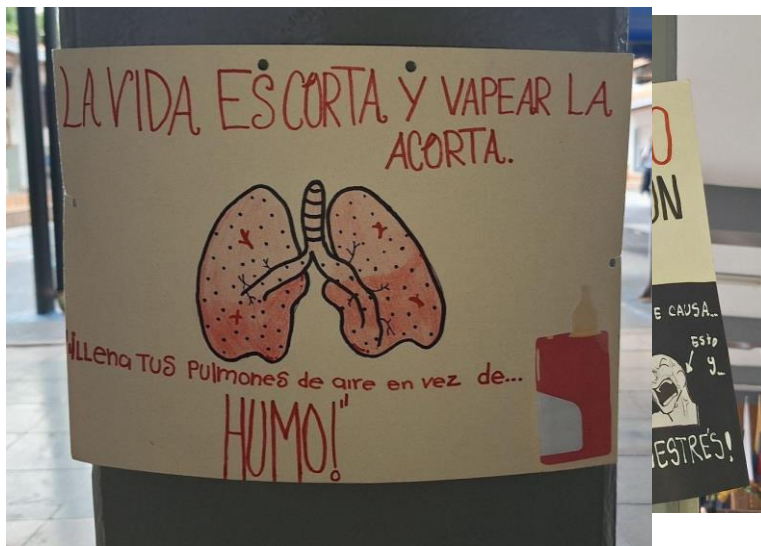 LA VIDA ES CORTA Y VAPEAR LA
ACORTA.
"LLena TUS PULmones de aire en vez de...
HUMO!"
E CAUSA...
ESto
y_
ESTRÉS!